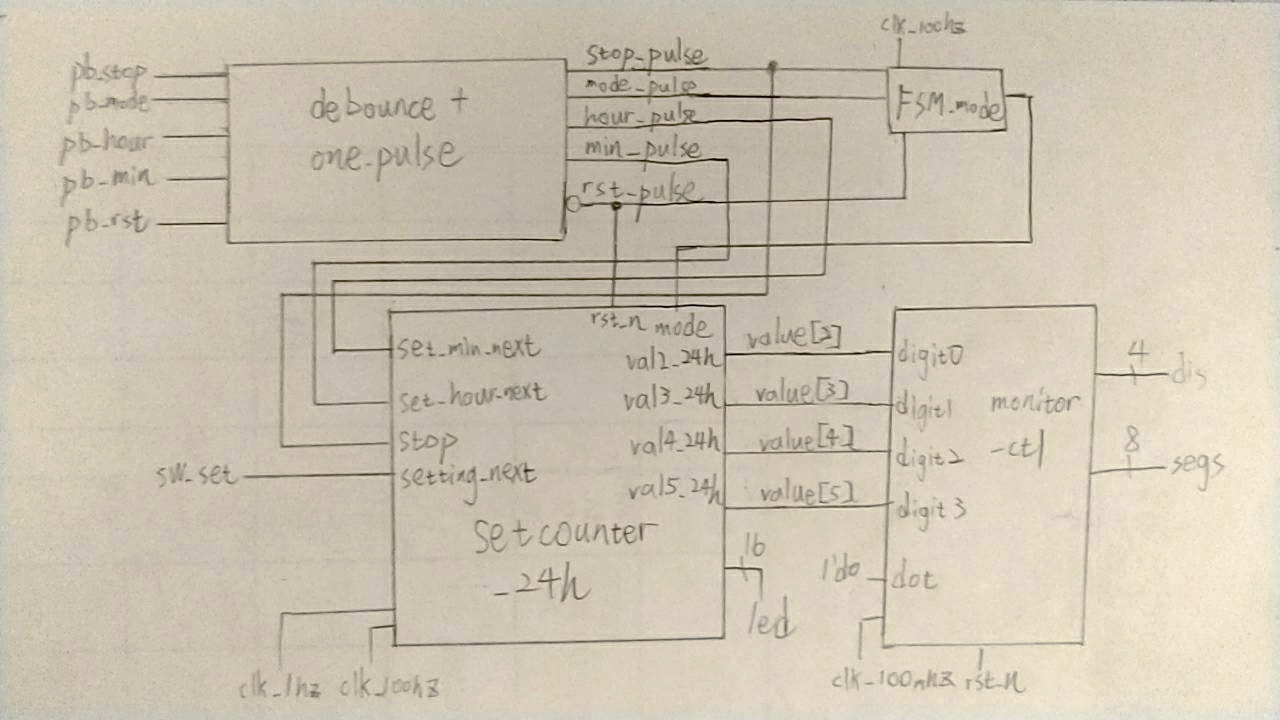 clk_100hz
pb_stop
pb_mode
pb_hour
pb_min
pb_rst
debounce +
one_pulse
stop_pulse
mode_pulse
hour_pulse
min_pulse
rst_pulse
FSM_mode
rst_n mode
set_min_next
set_hour_next
stop
setting_next
sw_set
val2_24h
val3_24h
val4_24h
val5_24h
setcounter
_24h
value[2]
value[3]
value[4]
value[5]
16
led
digit0
digit1
digit2
digit3
dot
1'd0
monitor
_ctl
4
dis
8
segs
clk_1hz
clk_100hz
clk_100mhz
rst_n